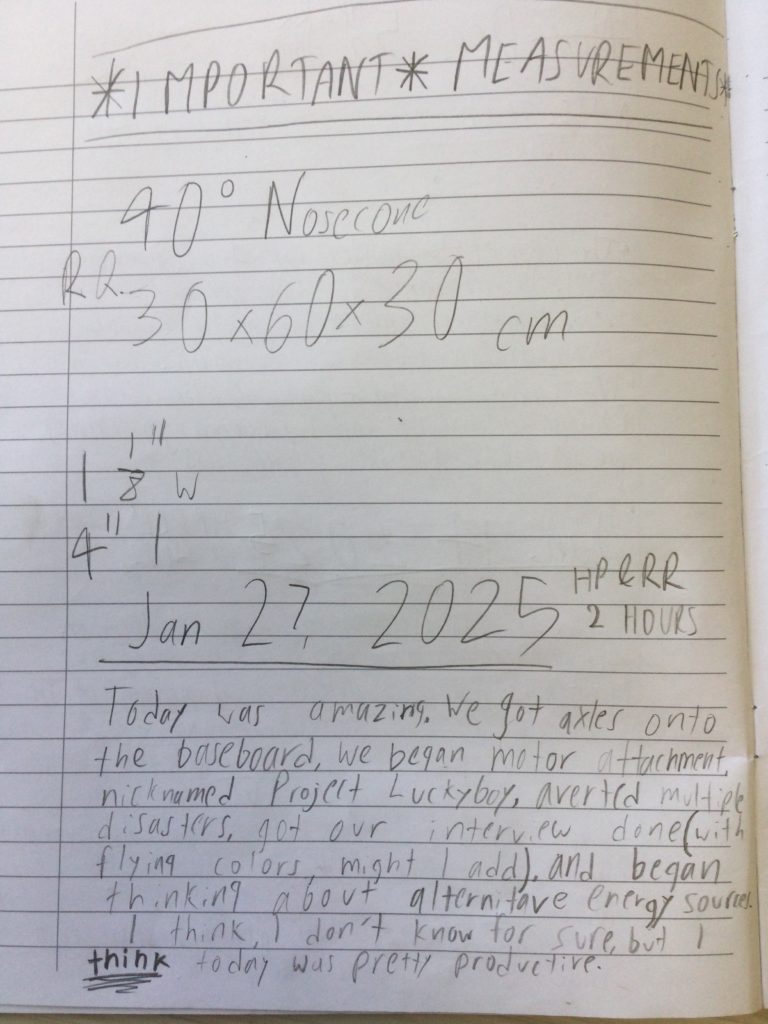 *IMPORTANT* MEASUREMENTS*
40° Nosecone
R.R. 30x60x30 cm
1 1/8" w
4" l
Jan 27, 2025 HP&RR
2 HOURS
Today was amazing. We got axles onto
the baseboard, we began motor attachment,
nicknamed Project Luckyboy, averted multiple
disasters, got our interview done(with
flying colors, might I add), and began
thinking about alternitave energy sources.
I think, I don't know for sure, but I
think today was pretty productive.